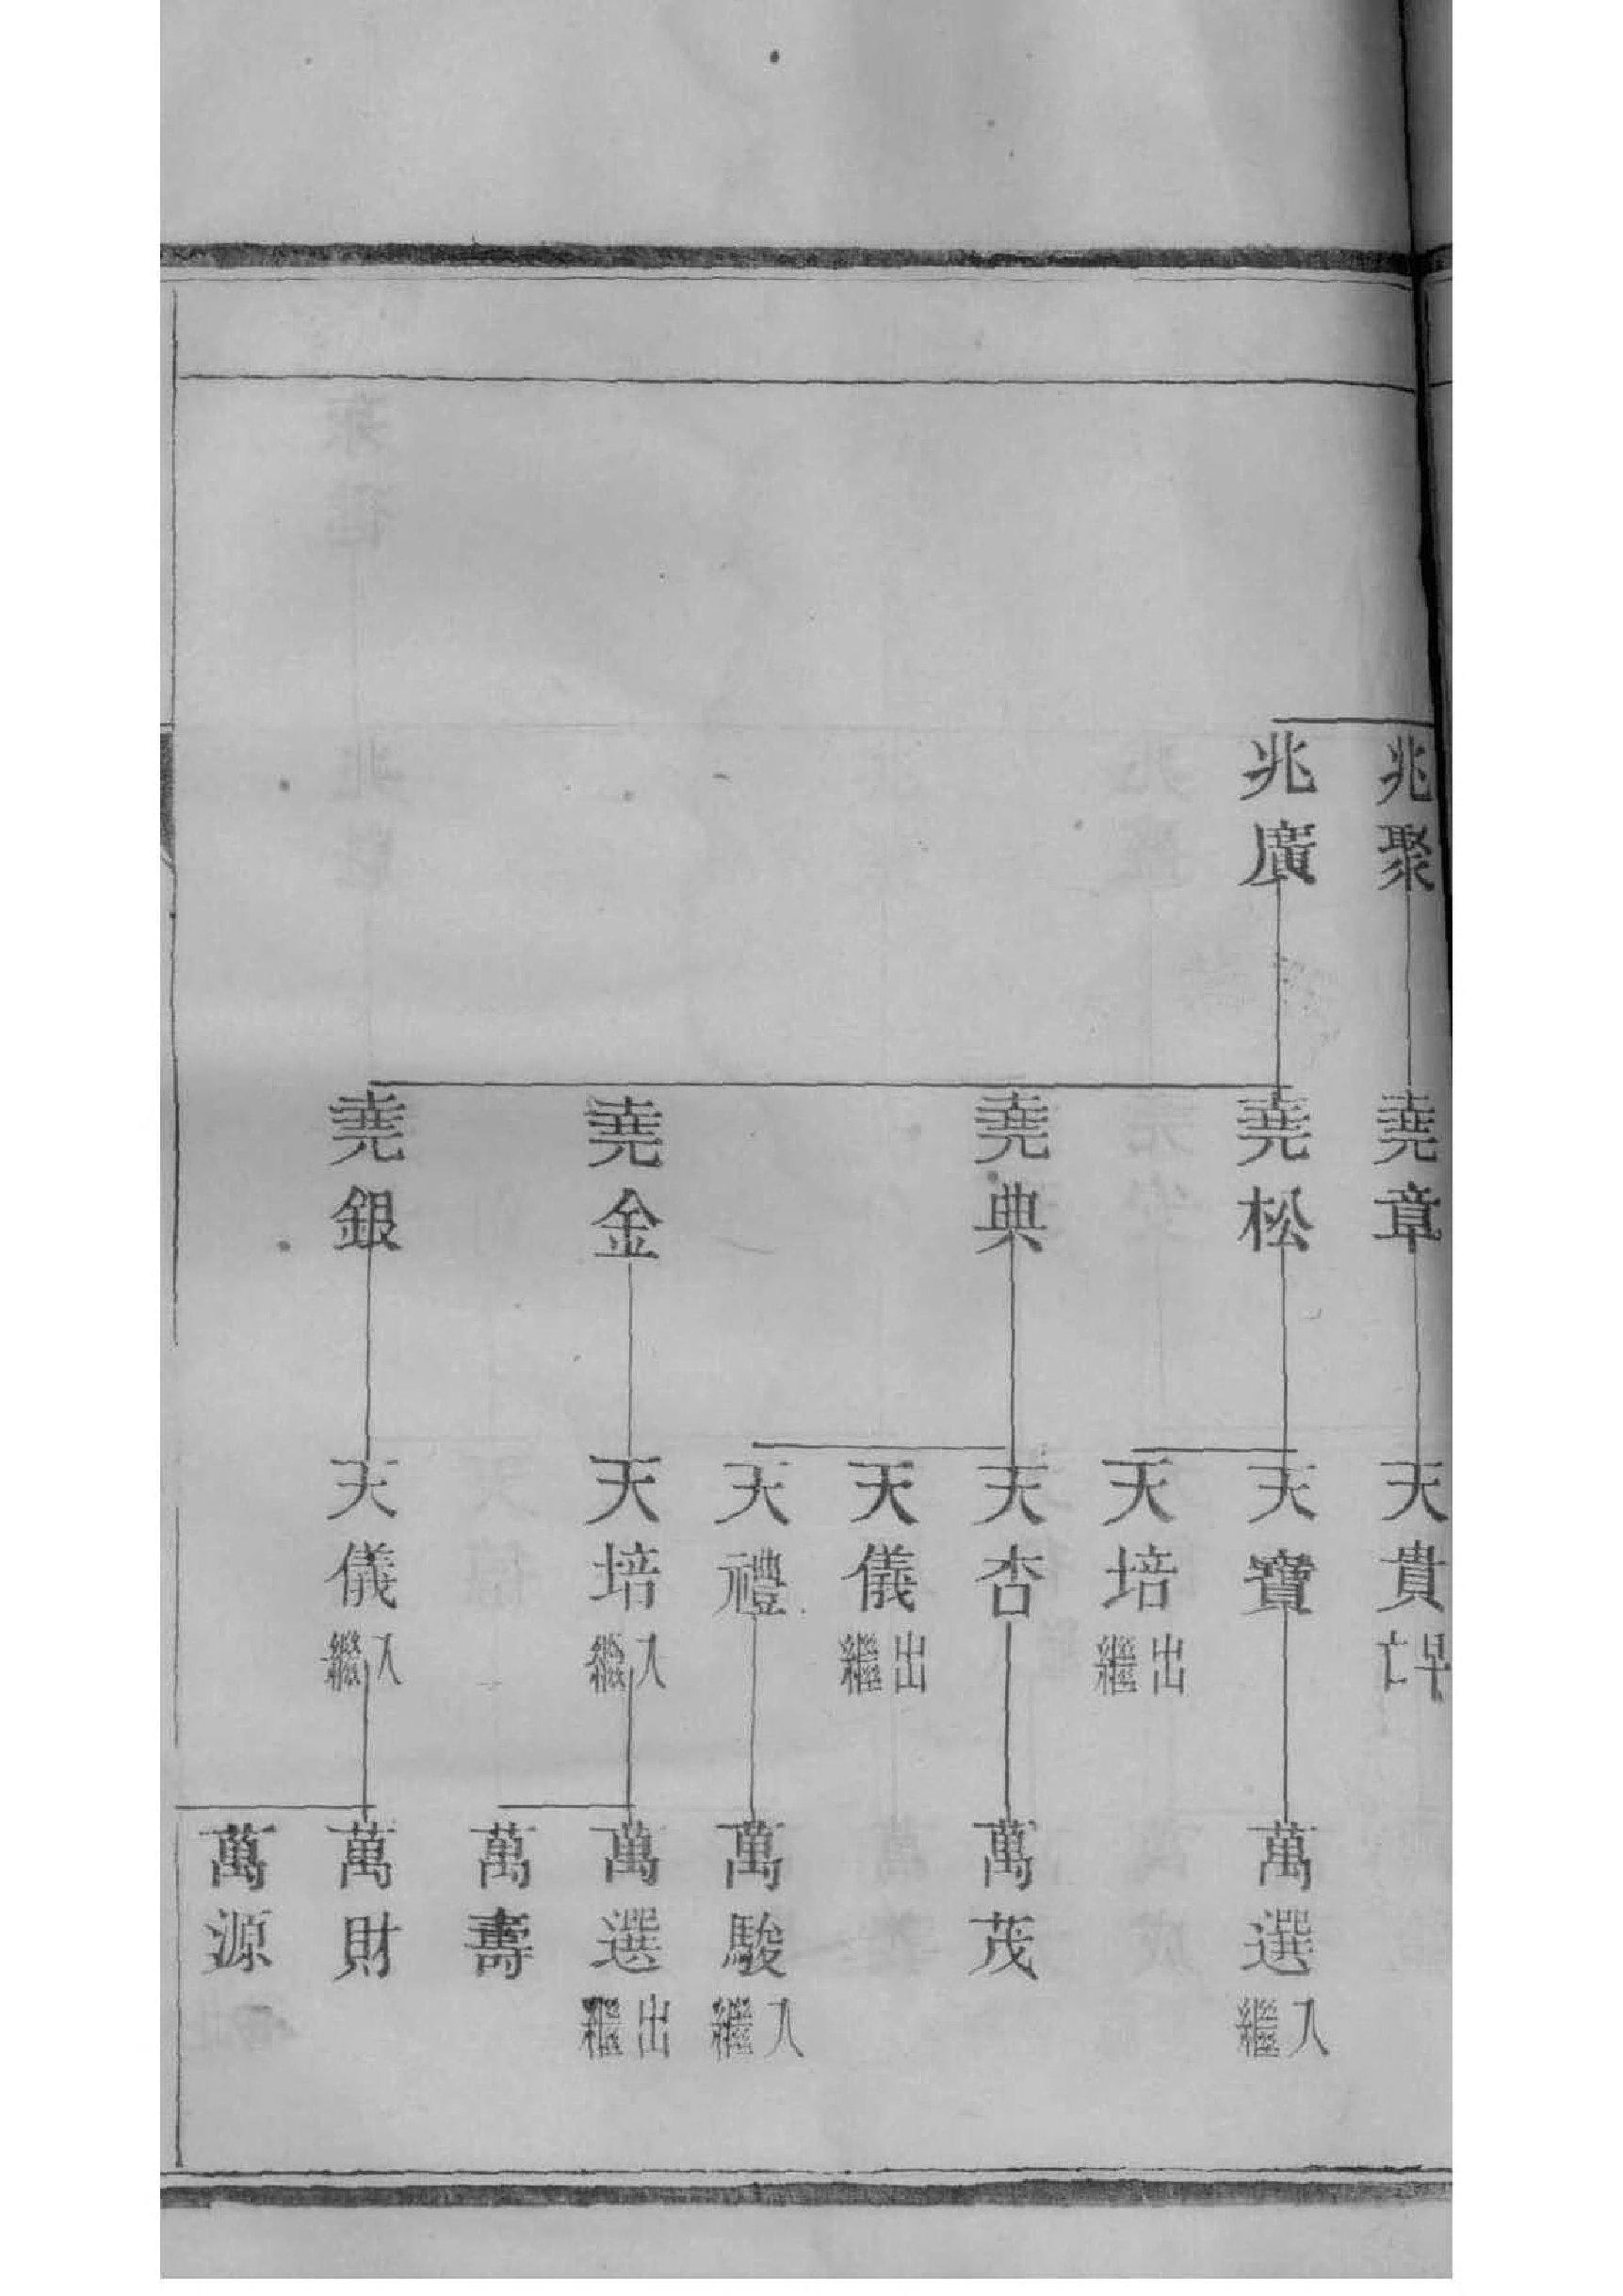 兆聚
兆廣
堯章
堯松
堯典
堯金
堯銀
天貴早亡
天寶
天培出繼
天杏
天儀出繼
天禮
天培入繼
天儀入繼
萬選入繼
萬茂
萬駿入繼
萬選出繼
萬壽
萬財
萬源